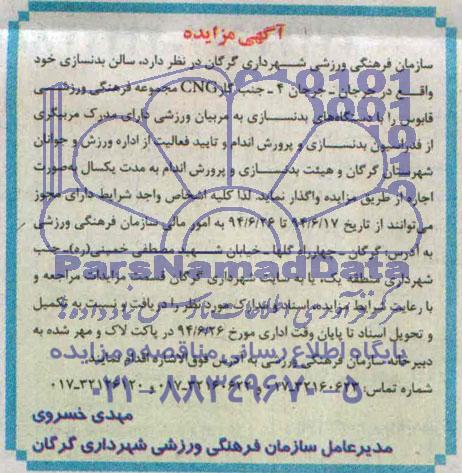 آگهی مزایده
سازمان فرهنگی ورزشی شهرداری گرگان در نظر دارد، سالن بدنسازی خود
واقع در جرجان - جرجان ۴ - جنب گاز CNG مجموعه فرهنگی ورزشی
قابوس را با دستگاههای بدنسازی به مربیان ورزشی دارای مدرک مربیگری
از فدراسیون بدنسازی و پرورش اندام و تایید فعالیت از اداره ورزش و جوانان
شهرستان گرگان و هیئت بدنسازی و پرورش اندام به مدت یکسال بهصورت
اجاره از طریق مزایده واگذار نماید. لذا کلیه اشخاص واجد شرایط دارای مجوز
می‌توانند از تاریخ ۹۴/۶/۱۷ تا ۹۴/۶/۲۶ به امور مالی سازمان فرهنگی ورزشی
به آدرس: گرگان - چهارراه گلها - خیابان شهید مصطفی خمینی(ره)- جنب
شهرداری منطقه یک، یا به سایت شهرداری گرگان قسمت مزایدات مراجعه و
با رعایت شرایط مزایده، اسناد و مدارک مورد نظر را دریافت و نسبت به تکمیل
و تحویل اسناد تا پایان وقت اداری مورخ ۹۴/۶/۲۶ در پاکت لاک و مهر شده به
دبیرخانه سازمان فرهنگی ورزشی به آدرس فوق‌الاشاره اقدام نمایید.
شماره تماس:
مهدی خسروی
مدیرعامل سازمان فرهنگی ورزشی شهرداری گرگان
ParsNamadData
پایگاه اطلاع رسانی مناقصه و مزایده
۰۲۱-۸۸۳۴۹۶۷۰-۵